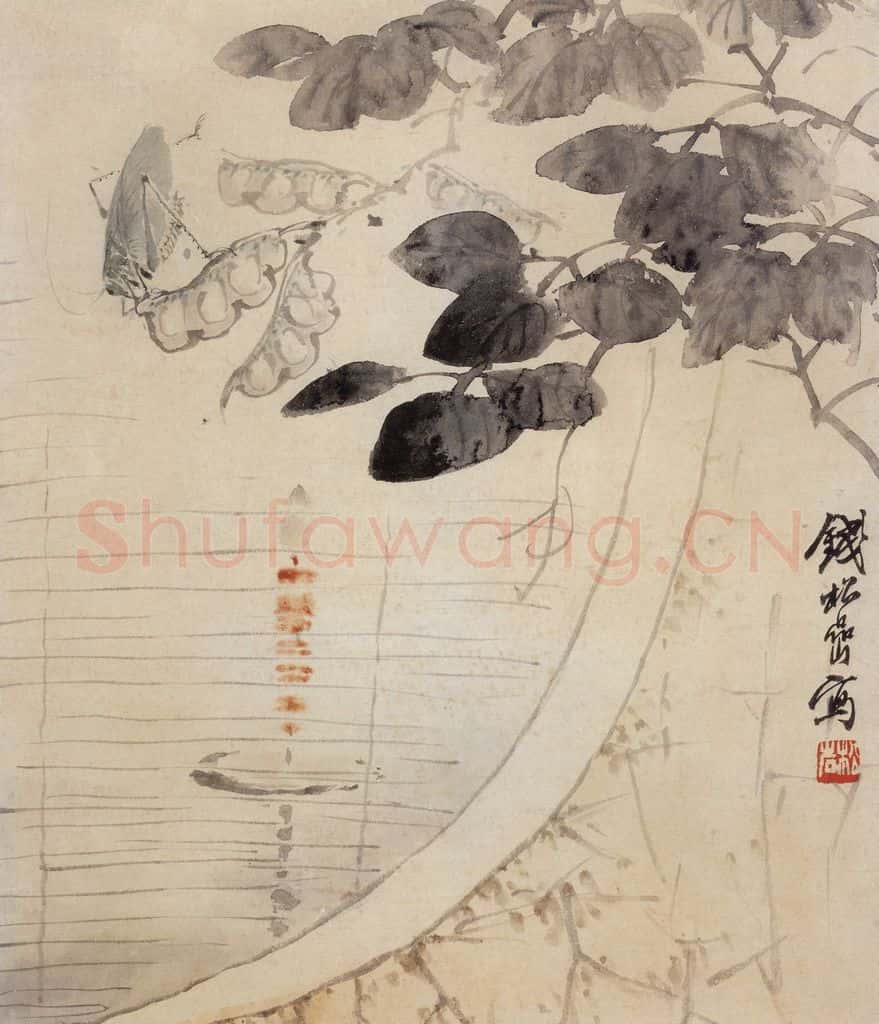 Shufawang.CN
錢松嵒寫